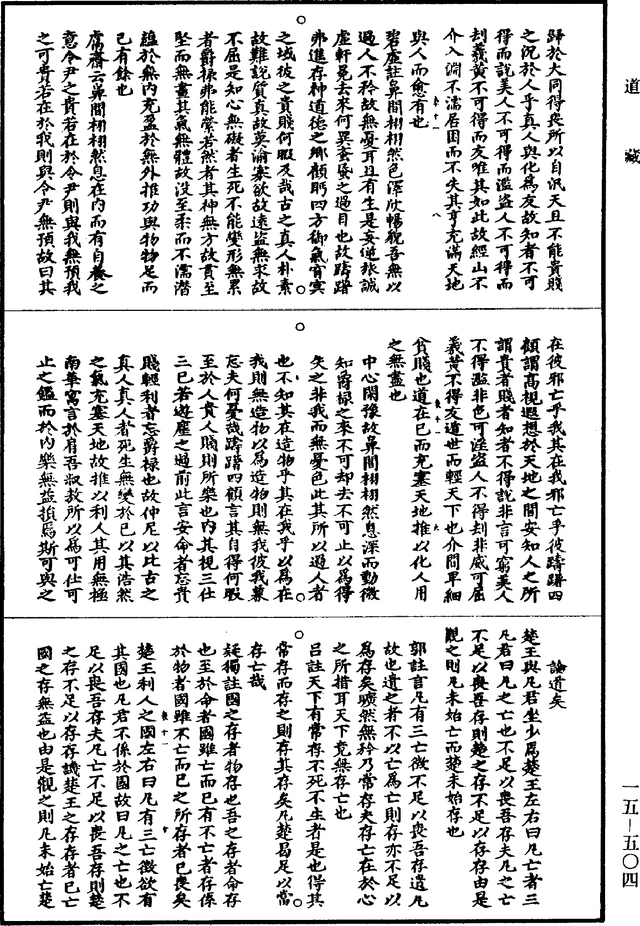 道藏
歸於大同得喪所以自泯天且不能貴賤
之況於人乎真人與化為友故知者不可
得而說美人不可得而濫盜人不可得而
刦羲黃不可得而友唯其如此故經山不
介入淵不濡居困而不失其亨充滿天地
與人而愈有也
碧虛註鼻間栩栩然色澤欣暢貌吾無以
過人不矜故無憂耳且有生是妄逆旅誠
虛軒冕去來何異蚉蝱之過目也故躊躇
弗進存神道德之鄉顧眄四方御氣實冥
之域彼之貴賤何暇及哉古之真人朴素
故難說質真故莫淪寡欲故遠盜無求故
不屈是知心無礙者生死不能變形無累
者爵祿弗能縈若然者其神無方故貫至
堅而無晝其氣無體故沒至柔而不濡潛
蘊於無內充盈於無外推功與物物足而
已有餘也
庸齋云鼻間栩栩然息在內而有自養之
意令尹之貴若在於令尹則與我無預我
之可貴若在於我則與令尹無預故曰其
在彼邪亡乎我其在我邪亡乎彼躊躇四
顧謂高視遐想於天地之間安知人之所
謂貴者賤者知者不得說非言可窮美人
不得濫非色可淫盜人不得刦非威可屈
羲黃不得友遁世而輕天下也介間卑細
貧賤也道在已而充塞天地推以化人用
之無盡也
中心閑豫故鼻間栩栩然息深而動微
知爵祿之來不可却去不可止以為得
失之非我而無憂色此其所以過人者
也不知其在造物乎其在我乎以為在
我則無造物以為造物則無我彼我兼
忘夫何憂哉躊躇四顧言其自得何暇
至於人貴人賤則所樂也內其視三仕
三已若遊塵之過前此言安命者忘貴
賤輕利者忘爵祿也故仲尼以比古之
真人真人者死生無變於已以其浩然
之氣充塞天地故推以利人其用無極
南華寓言於肩吾叔敖所以為可仕可
止之鑑而於內樂無益損焉斯可與之
論道矣
楚王與凡君坐少焉楚王左右曰凡亡者三
凡君曰凡之亡也不足以喪吾存夫凡之亡
不足以喪吾存則楚之存不足以存存由是
觀之則凡未始亡而楚未始存也
郭註言凡有三亡徵不足以喪吾存遺凡
故也遺之者不以亡為亡則存亦不足以
為存矣曠然無矜乃常存夫存亡在於心
之所措耳天下竟無存亡也
呂註天下有常存不死不生者是也得其
常存而存之則存其存矣凡楚曷足以當
存亡哉
疑獨註國之存者物存也吾之存者命存
也至於命者國雖亡而已有不亡者存係
於物者國雖不亡而已之所存者已喪矣
楚王利人之國左右曰凡有三亡徵欲有
其國也凡君不係於國故曰凡之亡也不
足以喪吾存夫凡亡不足以喪吾存則楚
之存不足以存存譏楚王之存存者已亡
國之存無益也由是觀之則凡未始亡楚
一五—五〇四